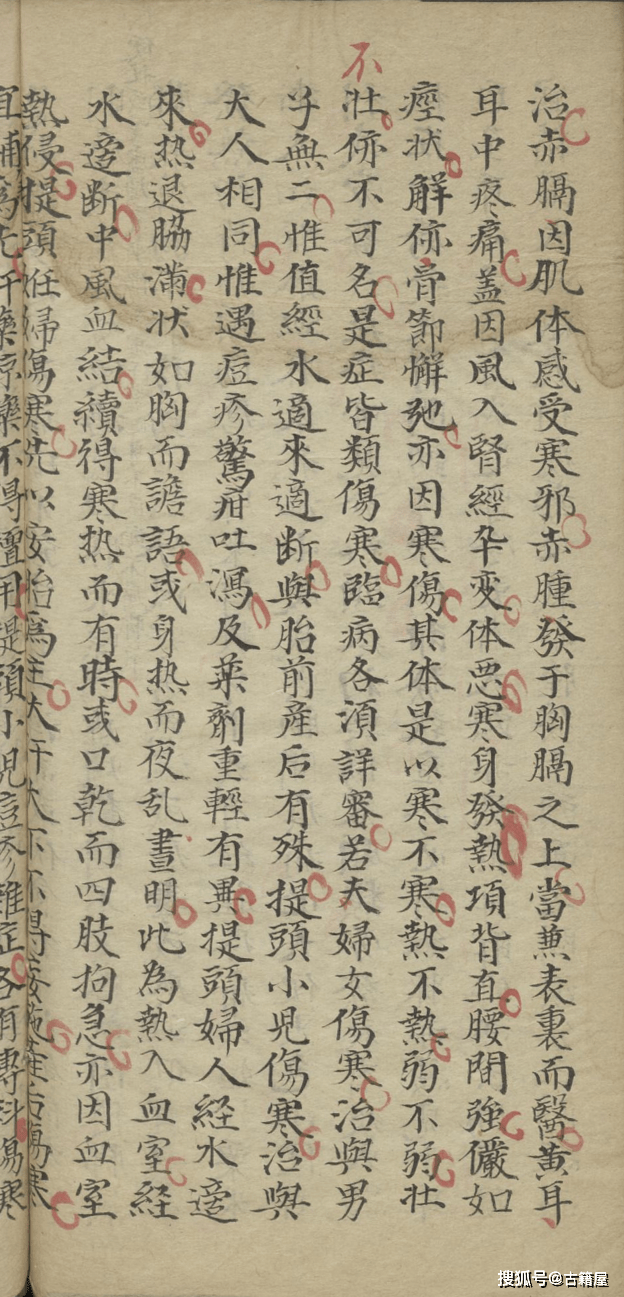 治赤膈因肌体感受寒邪赤腫發于胸膈之上當兼表裏而醫黄耳
耳中疼痛盖因風入腎經卒变体恶寒身發熱項背直腰間強儼如
痙状解㑊骨節懈弛亦因寒傷其体是以寒不寒熱不熱弱不弱壮
不
壮㑊不可名是症皆類傷寒臨病各須詳審若夫婦女傷寒治與男
子無二惟值經水適來適断與胎前産后有殊提頭小児傷寒治與
大人相同惟遇痘疹驚疳吐瀉及薬劑重輕有異提頭婦人経水適
來热退脇滿状如胸而譫語或身热而夜乱晝明此為熱入血室経
水適断中風血結續得寒热而有時或口乾而四肢拘急亦因血室
熱侵提頭妊婦傷寒先以安胎為主大汗大下不得妄施産后傷寒
小児痘疹雜症各有專科傷寒
搜狐号@古籍屋